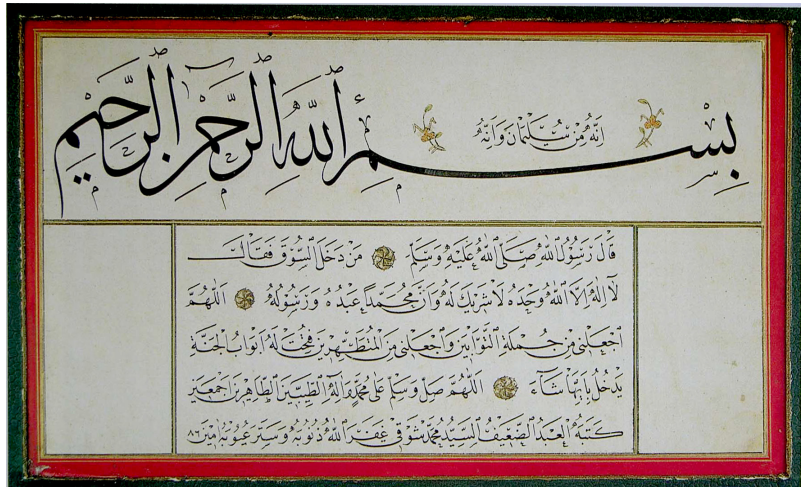 بِسْمِ ٱللَّهِ ٱلرَّحْمٰنِ ٱلرَّحِيمِ
اِنَّهُ مِنْ سُلَيْمَانَ وَاِنَّهُ
قَالَ رَسُولُ اللّٰهِ صَلَّى اللّٰهُ عَلَيْهِ وَسَلَّمَ مَنْ دَخَلَ السُّوقَ فَقَالَ
لَا اِلٰهَ اِلَّا اللّٰهُ وَحْدَهُ لَا شَرِيكَ لَهُ وَاَنَّ مُحَمَّداً عَبْدُهُ وَرَسُولُهُ اَللّٰهُمَّ
اجْعَلْنِي مِنْ جُمْلَةِ التَّوَّابِينَ وَاجْعَلْنِي مِنَ الْمُتَطَهِّرِينَ فُتِحَتْ لَهُ اَبْوَابُ الْجَنَّةِ
يَدْخُلُ بِاَيِّهَا شَاءَ اَللّٰهُمَّ صَلِّ وَسَلِّمْ عَلَى مُحَمَّدٍ وَاٰلِهِ الطَّيِّبِينَ الطَّاهِرِينَ اَجْمَعِينَ
كَتَبَهُ الْعَبْدُ الضَّعِيفُ السَّيِّدُ مُحَمَّد شَوْقِي غَفَرَ اللّٰهُ ذُنُوبَهُ وَسَتَرَ عُيُوبَهُ اٰمِين ٨٦